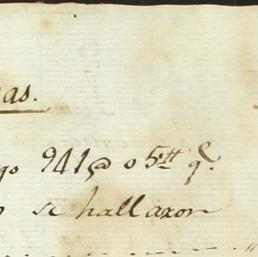 as.
go 941@ 05 tt q.e
se hallaron